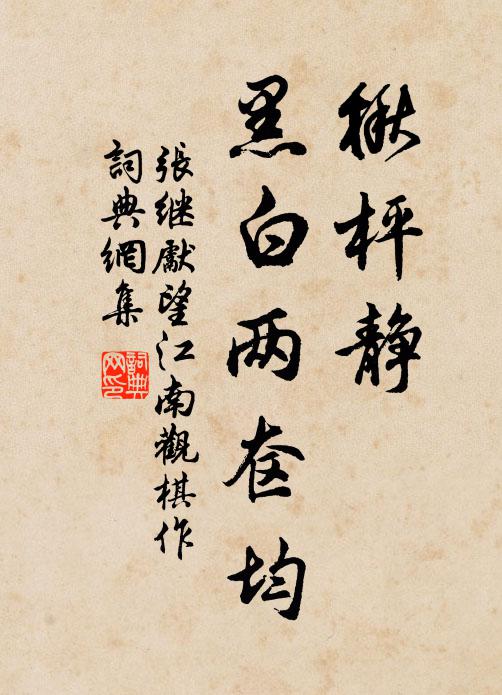 楸枰静
黑白两奁均
張继獻望江南觀棋作
詞典網集
詞典
网印